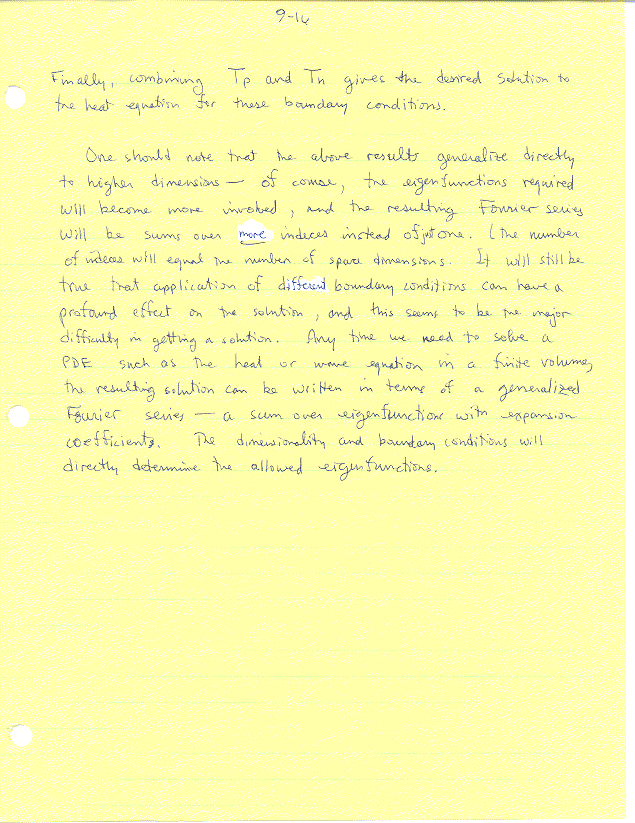 9-16
Finally, combining Tp and Tn gives the desired solution to
the heat equation for these boundary conditions.
One should note that the above results generalize directly
to higher dimensions — of course, the eigenfunctions required
will become more involved, and the resulting Fourier series
will be sums over more indeces instead of just one. (The number
of indeces will equal the number of space dimensions. It will still be
true that application of different boundary conditions can have a
profound effect on the solution, and this seems to be the major
difficulty in getting a solution. Any time we need to solve a
PDE such as the heat or wave equation in a finite volume,
the resulting solution can be written in terms of a generalized
Fourier series — a sum over eigenfunctions with expansion
coefficients. The dimensionality and boundary conditions will
directly determine the allowed eigenfunctions.